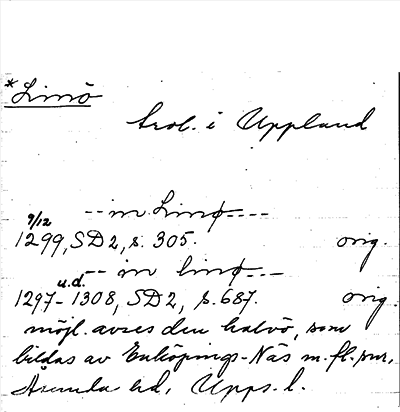 *Limö
trol. i Uppland
9/12 -- in Limø ---
1299, SD 2, s. 305. orig.
u.d. -- in limø ---
1297-1308, SD 2, s. 687. orig.
möjl. avses den halvö, som
bildas av Enköpings-Näs m.fl. snr,
Åsunda hd, Upps. l.